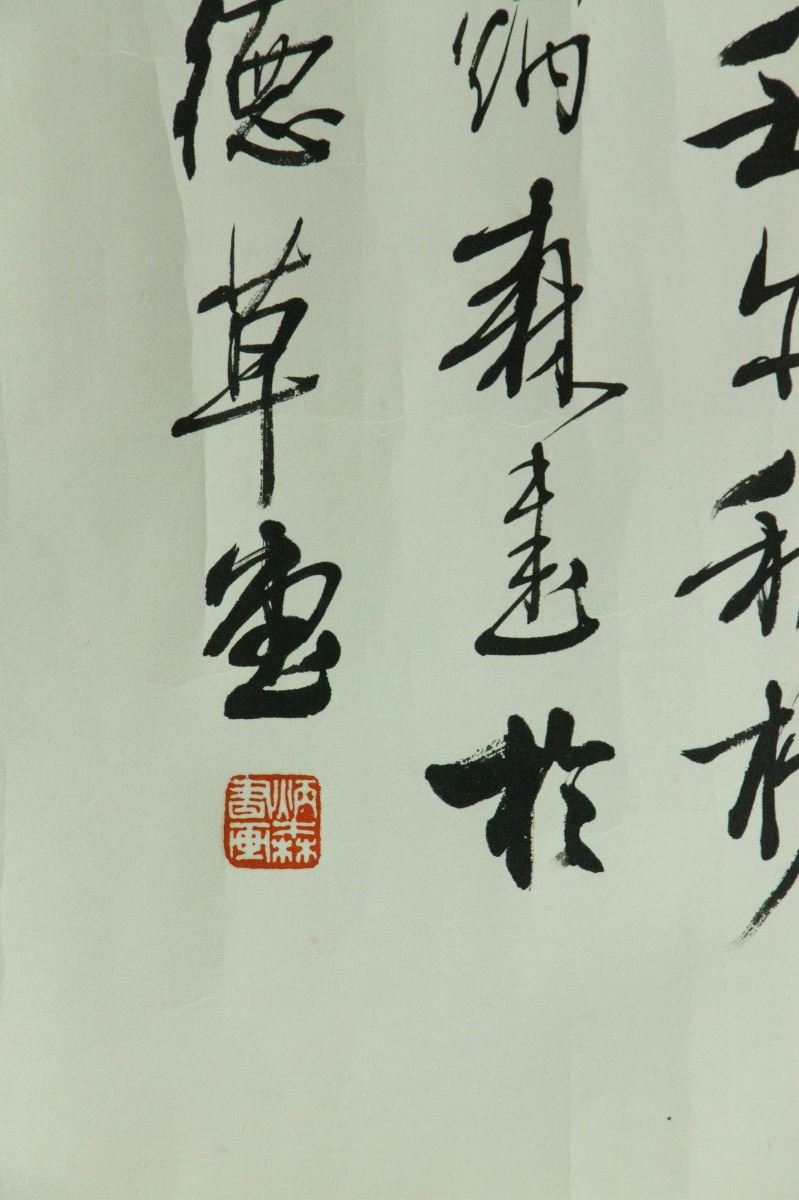 壬午秋
炳森書於
德草堂
炳森書画